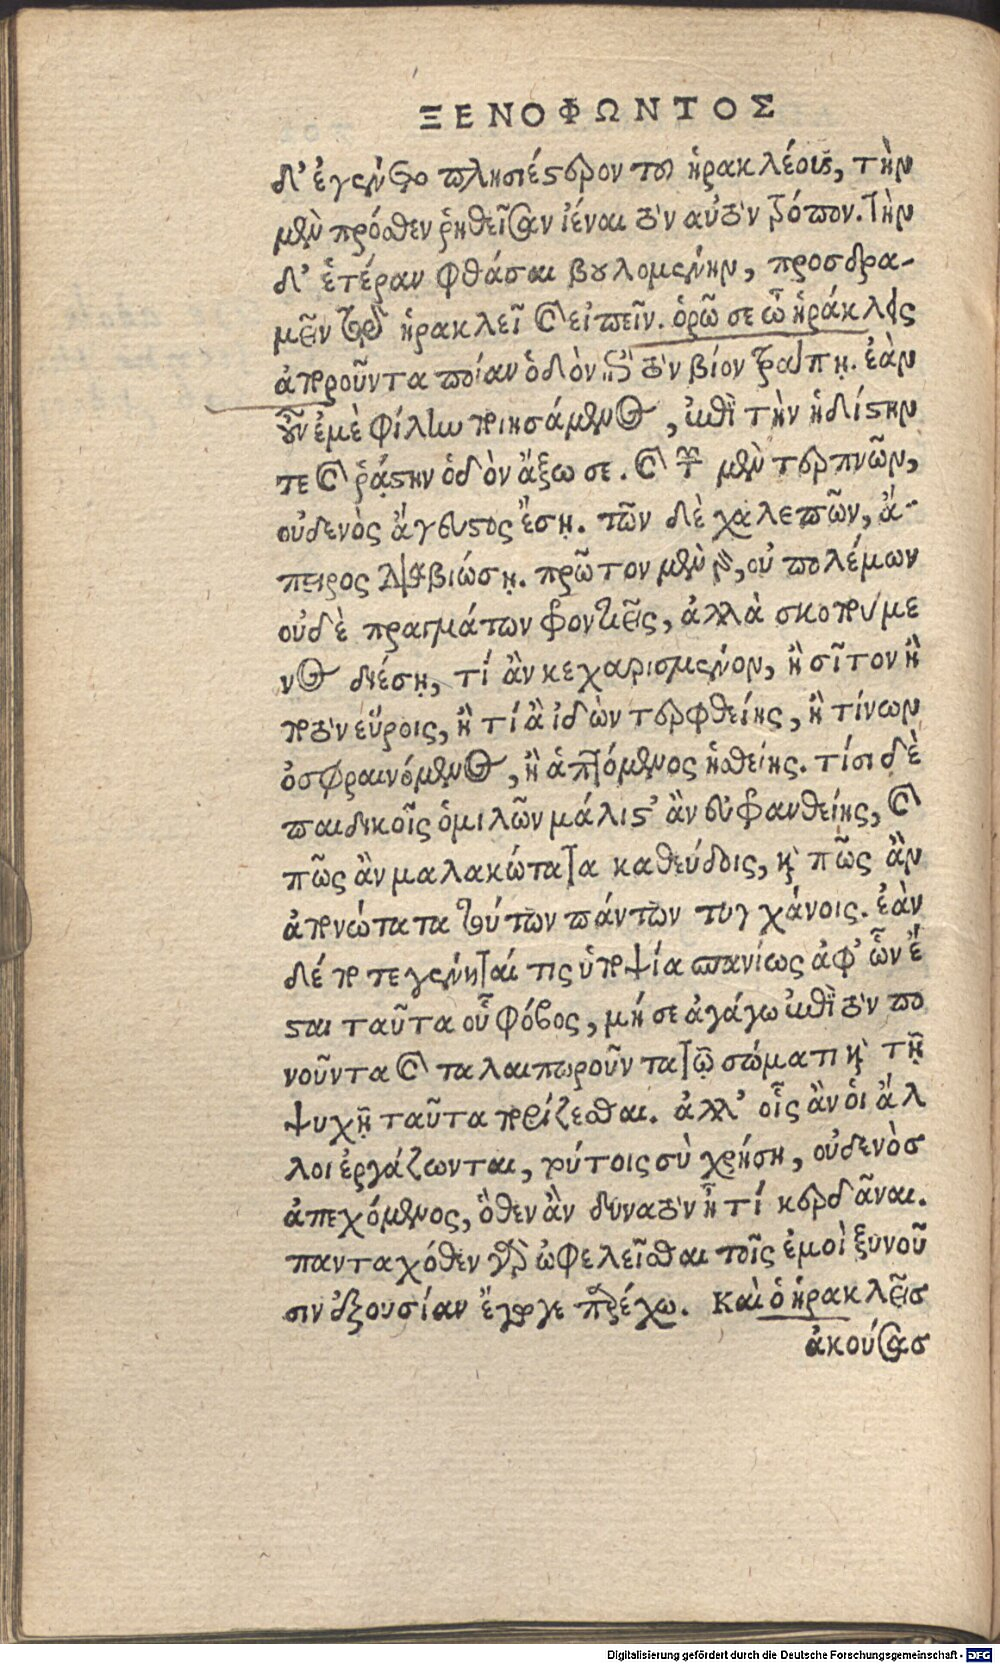 ΞΕΝΟΦΩΝΤΟΣ
δ' ἐγένοντο πλησιέστερον τοῦ ἡρακλέους, τὴν
μὲν πρόσθεν ῥηθεῖσαν ἰέναι τὸν αὐτὸν τρόπον. Τὴν
δ' ἑτέραν φθάσαι βουλομένην, προσδρα-
μεῖν τῷ ἡρακλεῖ καὶ εἰπεῖν. ὁρῶ σε ὦ ἡράκλεις
ἀποροῦντα ποίαν ὁδὸν ἐπὶ τὸν βίον τράπῃ. ἐὰν
οὖν ἐμὲ φίλην ποιησάμενος, ἐπὶ τὴν ἡδίστην
τε καὶ ῥᾴστην ὁδὸν ἄξω σε. καὶ τῶν μὲν τερπνῶν,
οὐδενὸς ἄγευστος ἔσῃ. τῶν δὲ χαλεπῶν, ἄ-
πειρος διαβιώσῃ. πρῶτον μὲν γὰρ, οὐ πολέμων
οὐδὲ πραγμάτων φροντιεῖς, ἀλλὰ σκοπούμε
νος διέσῃ, τί ἂν κεχαρισμένον, ἢ σῖτον ἢ
ποτὸν εὕροις, ἢ τί ἂν ἰδὼν τερφθείης, ἢ τίνων
ὀσφραινόμενος, ἢ ἁπτόμενος ἡσθείης. τίσι δὲ
παιδικοῖς ὁμιλῶν μάλιστ' ἂν εὐφρανθείης, καὶ
πῶς ἂν μαλακώτατα καθεύδοις, καὶ πῶς ἂν
ἀπονώτατα τούτων πάντων τυγχάνοις. ἐὰν
δέ ποτε γένηταί τις ὑποψία σπανίως ἀφ' ὧν ἔ
σται ταῦτα οὐ φόβος, μή σε ἀγάγω ἐπὶ τὸν πο
νοῦντα καὶ ταλαιπωροῦντα τῷ σώματι καὶ τῇ
ψυχῇ ταῦτα πορίζεσθαι. ἀλλ' οἷς ἂν οἱ ἄλ
λοι ἐργάζωνται, τούτοις σὺ χρήσῃ, οὐδενὸσ
ἀπεχόμενος, ὅθεν ἂν δυνατὸν ᾖ τί κερδᾶναι.
πανταχόθεν γὰρ ὠφελεῖσθαι τοῖς ἐμοὶ ξυνοῦ
σιν ἐξουσίαν ἔγωγε παρέχω. Καὶ ὁ ἡρακλῆσ
ἀκούσασ
Digitalisierung gefördert durch die Deutsche Forschungsgemeinschaft - DFG